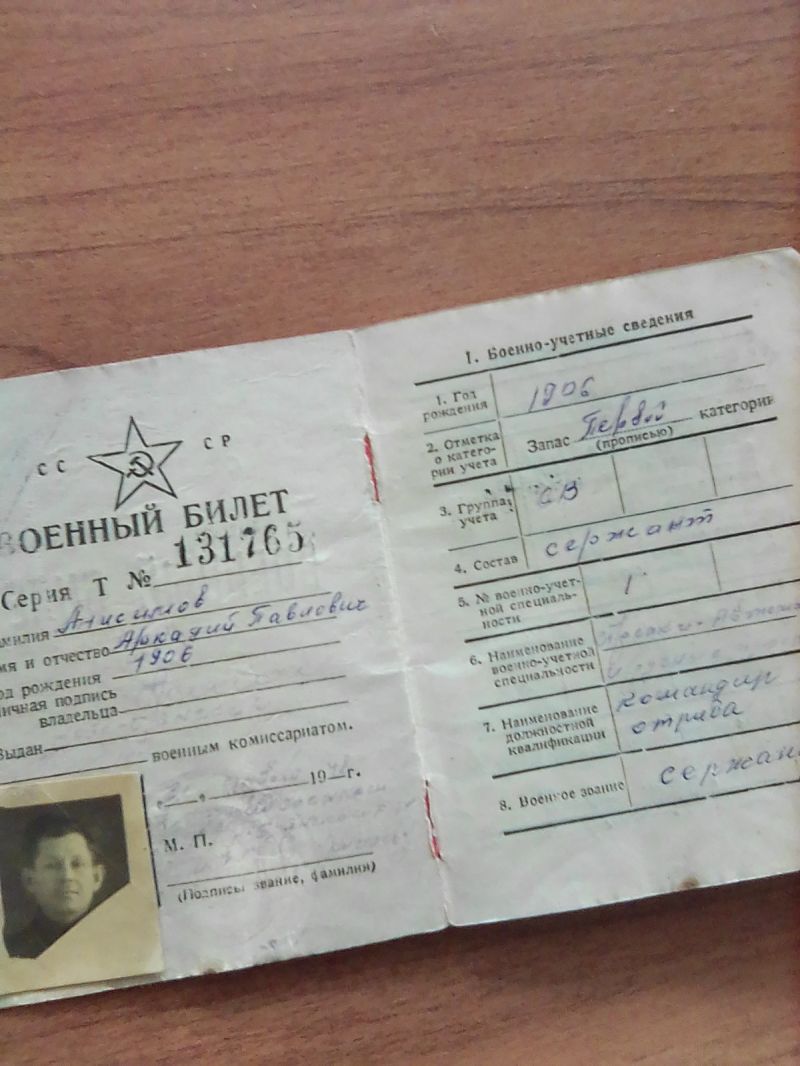 СС СР
ВОЕННЫЙ БИЛЕТ
Серия Т № 131765
Фамилия Анисимов
Имя и отчество Аркадий Павлович
Год рождения 1906
Личная подпись
владельца
Выдан
военным комиссариатом.
19 г.
М. П.
(Подпись, звание, фамилия)
1. Военно-учетные сведения
1. Год
рождения
1906
2. Отметка
о катего-
рии учета
Запас Первой категории
(прописью)
3. Группа
учета
СВ
4. Состав
сержант
5. № военно-учет-
ной специаль-
ности
1
6. Наименование
военно-учетной
специальности
7. Наименование
должностной
квалификации
командир
отряда
8. Военное звание
сержант